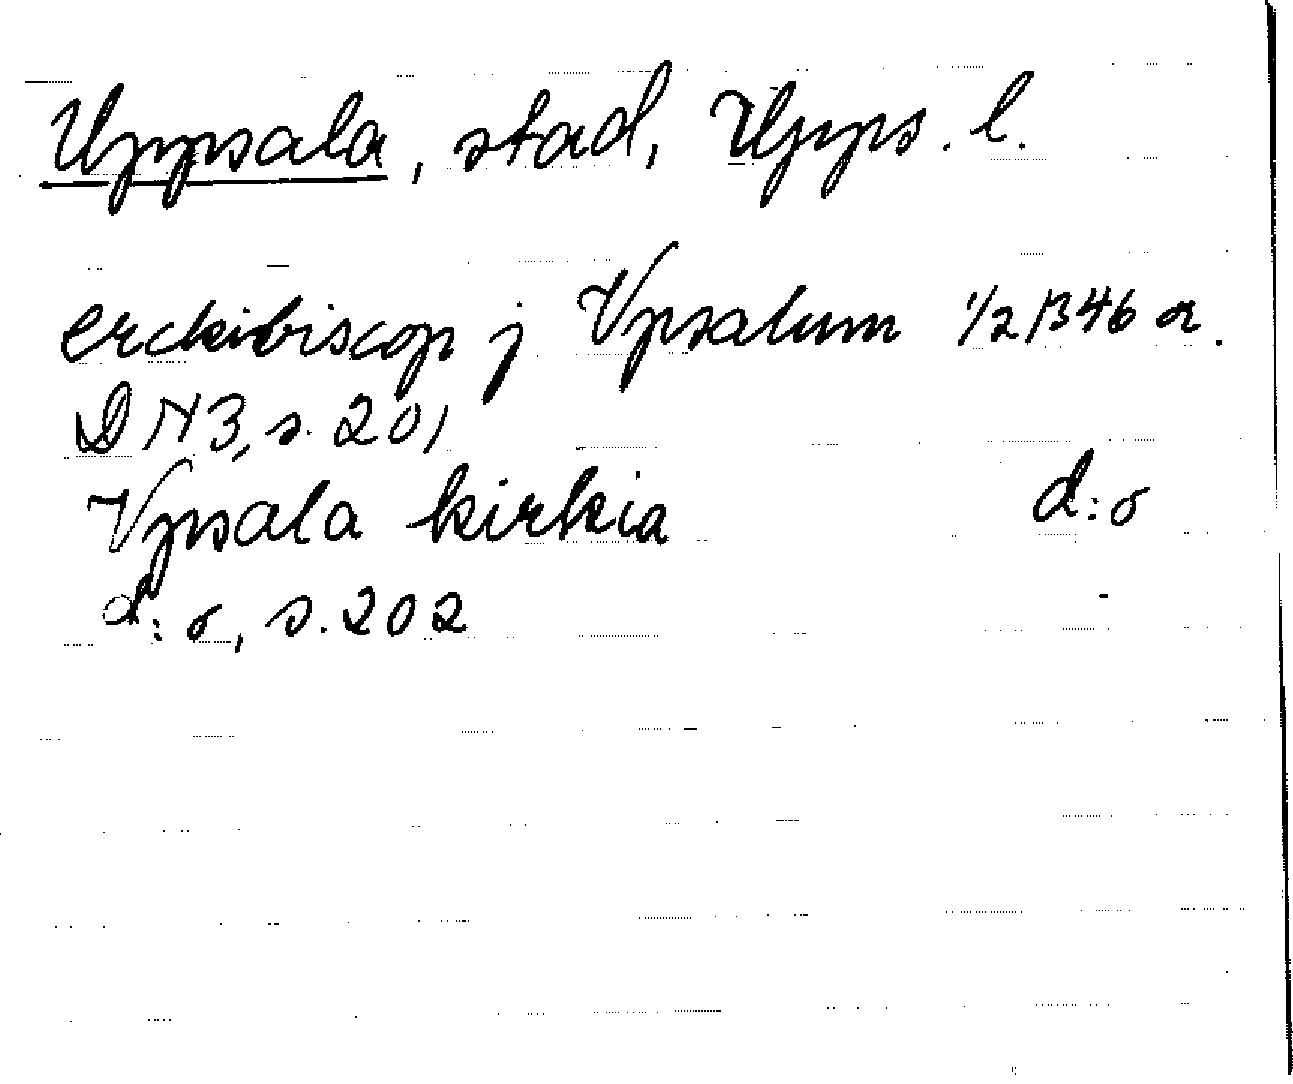 Uppsala, stad, Upps. l.
erchibiscop j Vpsalum 1/2 1346 or.
DN 3, s. 201
Vpsala kirkia d:o
d:o, s. 202 -